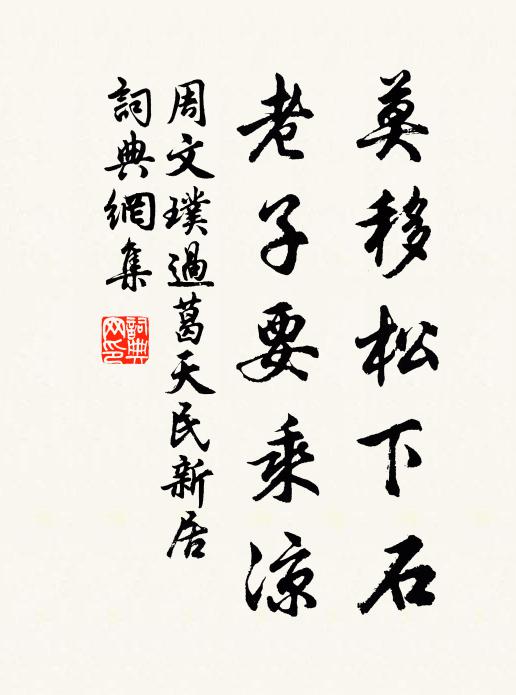 莫移松下石
老子要乘涼
周文璞過葛天民新居
詞典網集
詞典
网印